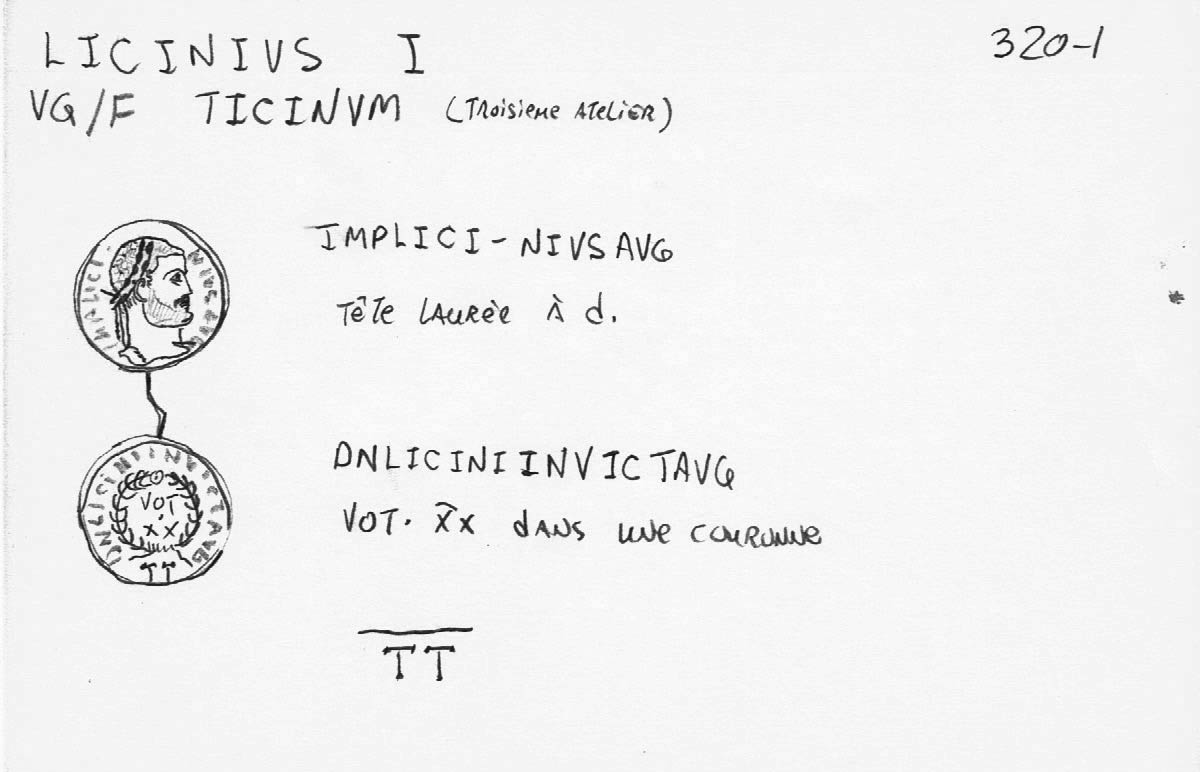 LICINIUS I
320-1
VG/F TICINVM (TROISIEME ATELIER)
IMPLICI-NIVSAVG
IMPLICI NIVSAVG
TÊTE LAURÉE À d.
DNLICINIINVICTAVG
DNLICINIINVICTAVG
VOT
XX
TT
VOT. XX dANS UNE COURONNE
TT